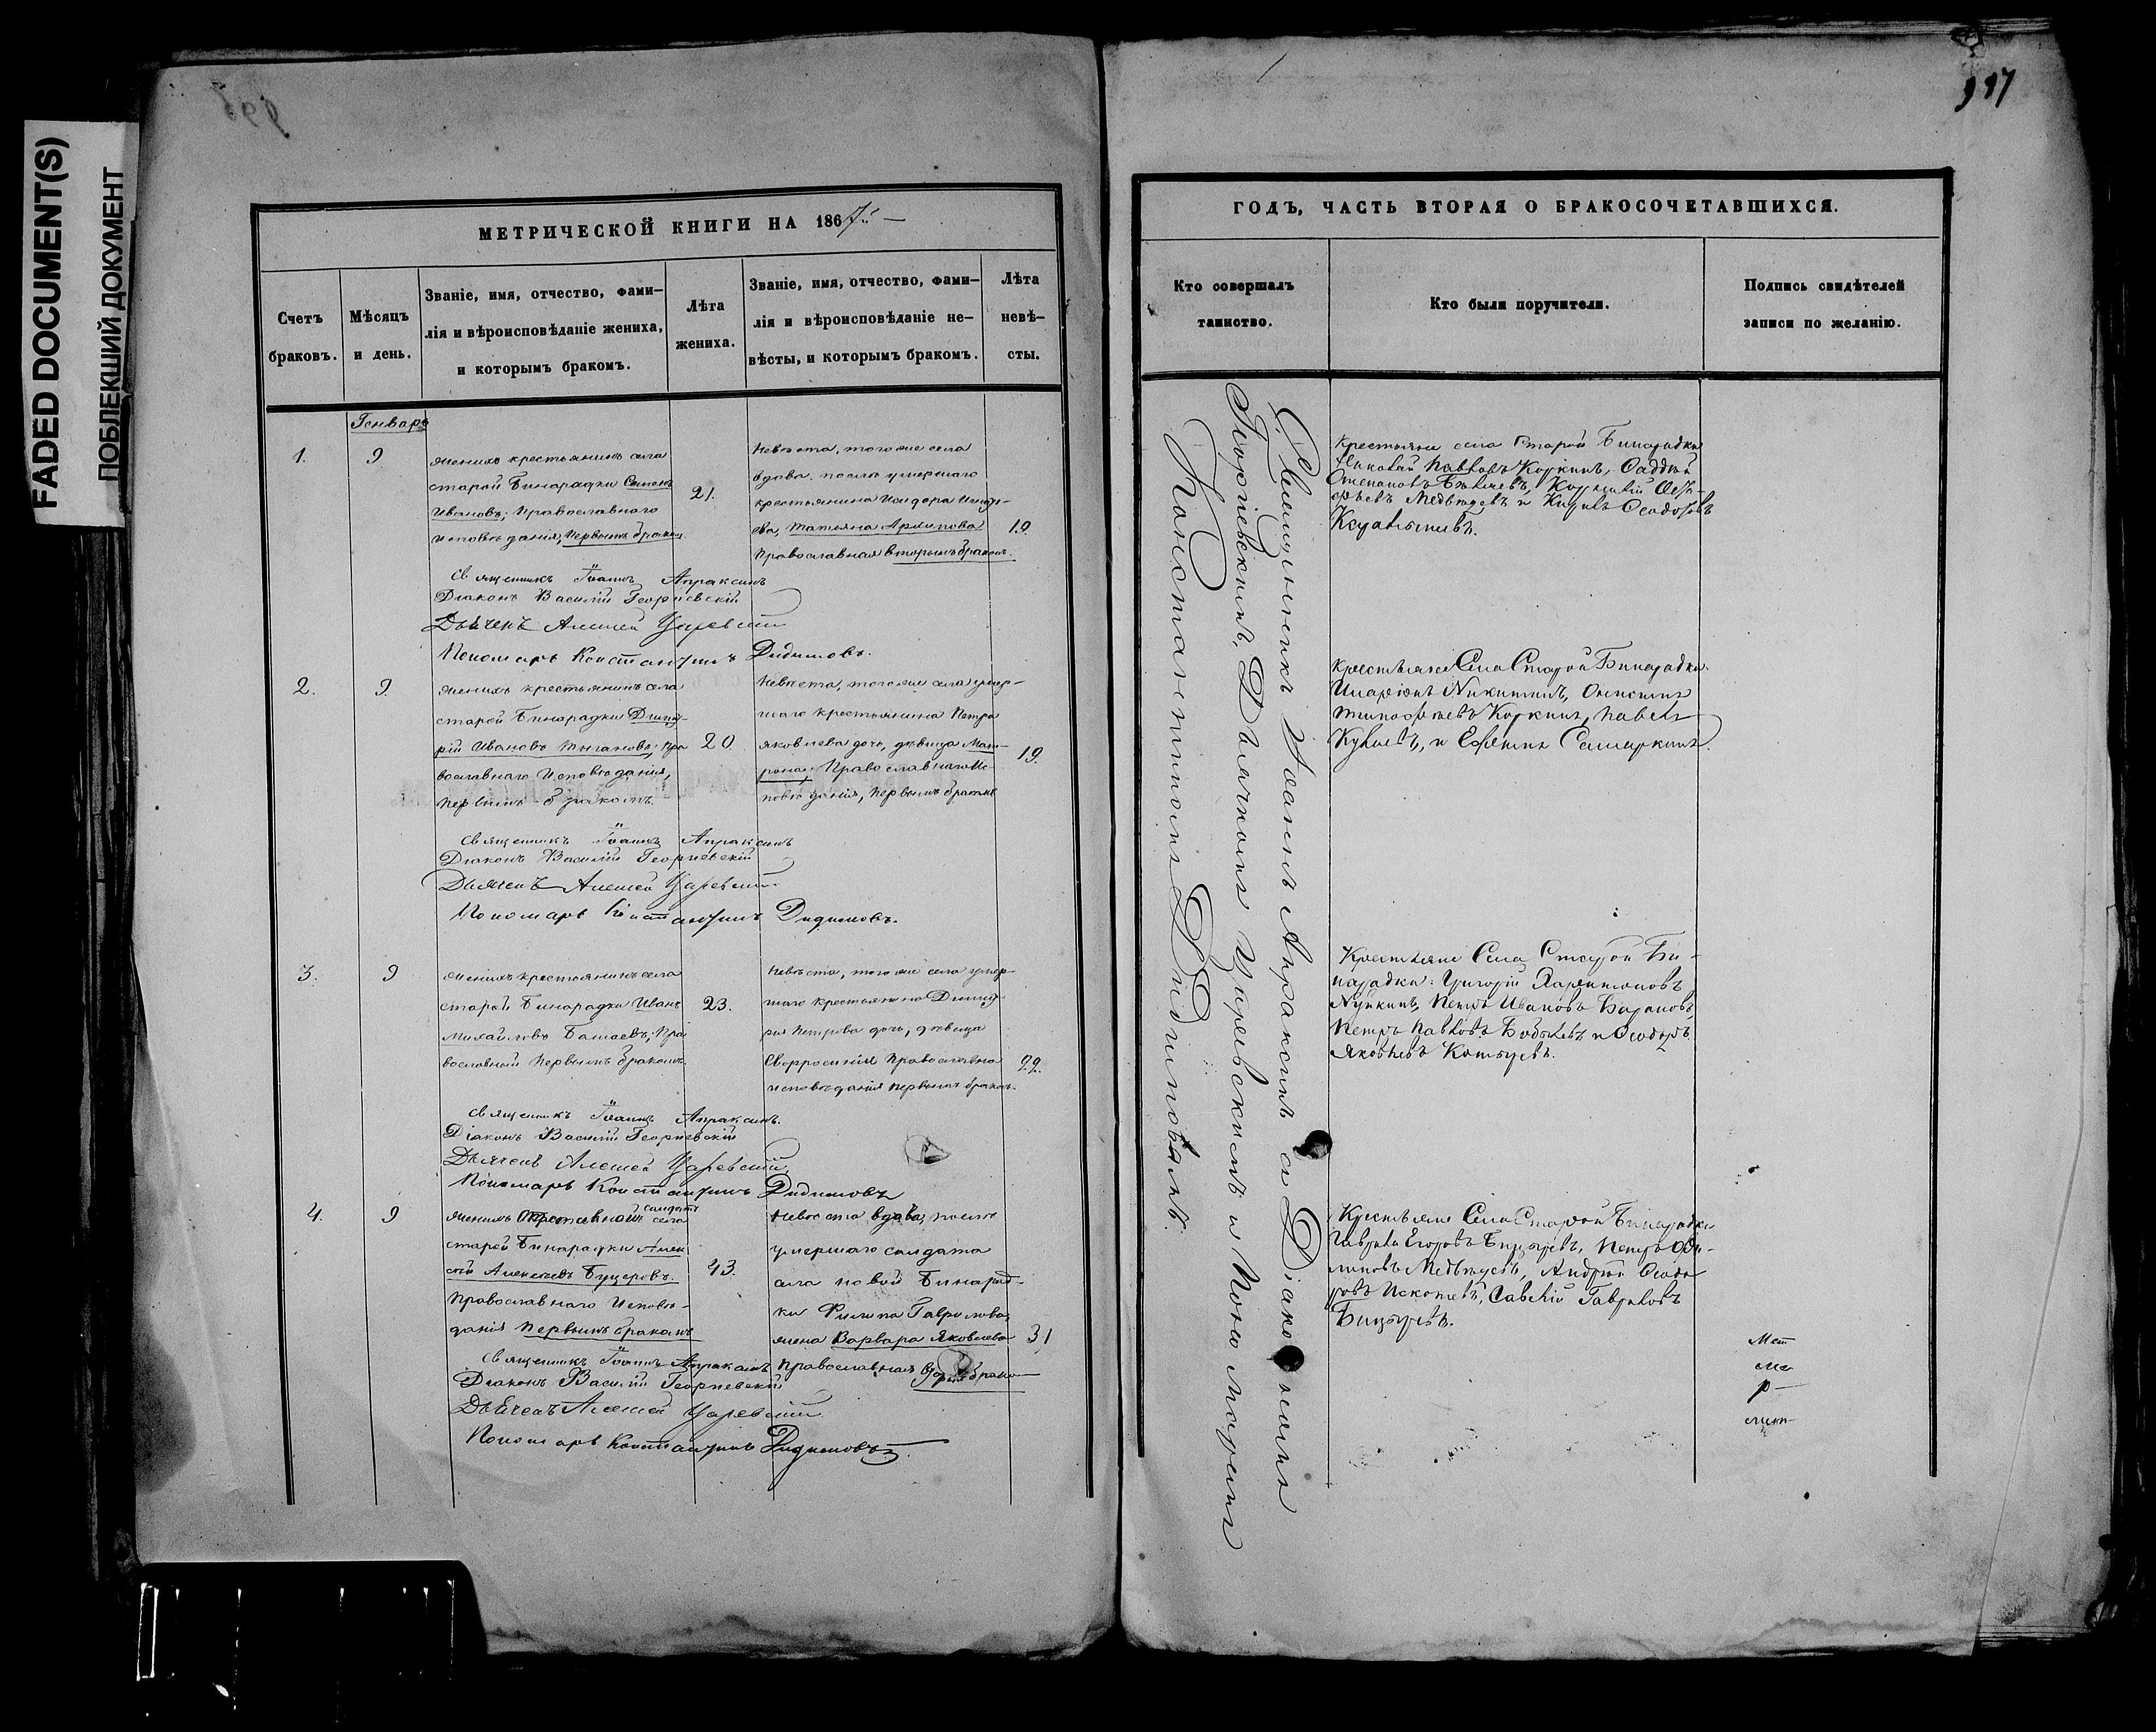 FADED DOCUMENT(S)
ПОБЛЕКШИЙ ДОКУМЕНТ
МЕТРИЧЕСКОЙ КНИГИ НА 1867й
Счетъ
браковъ.
Мѣсяцъ
и день.
Званіе, имя, отчество, фами-
лія и вѣроисповѣданіе жениха,
и которымъ бракомъ.
Лѣта
жениха.
Званіе, имя, отчество, фами-
лія и вѣроисповѣданіе не-
вѣсты, и которымъ бракомъ.
Лѣта
невѣ-
сты.
Генварь
1.
9
женихъ крестьянинъ села
старой Бинарадки Семенъ
Ивановъ; православнаго
исповѣданія, первымъ бракомъ.
21.
Невѣста, того же села
вдова послѣ умершаго
крестьянина Исидора
Татьяна Архипова
православная вторымъ бракомъ.
19.
Священникъ Іоаннъ Апраксинъ
Діаконъ Василій Георгіевскій
Дьячекъ Алексей Царевскій
Пономарь Константинъ Дидимовъ.
2.
9.
женихъ крестьянинъ села
старой Бинарадки Димит-
рій Ивановъ Цыгановъ; пра
вославнаго исповѣданія,
первымъ бракомъ.
20
Невѣста, того же села умер-
шаго крестьянина Петра
Яковлева дочь, дѣвица Мат-
рона; православнаго ис-
повѣданія, первымъ бракомъ
19.
Священникъ Іоаннъ Апраксинъ
Діаконъ Василій Георгіевскій
Дьячекъ Алексей Царевскій
Пономарь Константинъ Дидимовъ.
3.
9
женихъ крестьянинъ села
старой Бинарадки Иванъ
Михайловъ Башаевъ; пра
вославный первымъ бракомъ.
23.
Невѣста, того же села умер-
шаго крестьянина Димит-
рія Петрова дочь, дѣвица
православнаго
исповѣданія первымъ бракомъ.
22.
Священникъ Іоаннъ Апраксинъ.
Діаконъ Василій Георгіевскій
Дьячекъ Алексей Царевскій
Пономарь Константинъ Дидимовъ
4.
9
женихъ отставной солдатъ села
старой Бинарадки Алек
сѣй Алексѣевъ Буцеровъ.
Православнаго исповѣ-
данія первымъ бракомъ
43.
Невѣста вдова, послѣ
умершаго солдата
села новой Бинарад-
ки Филипа Гаврилова
жена Варвара Яковлева
православная бракомъ
31
Священникъ Іоаннъ Апраксинъ
Діаконъ Василій Георгіевскій
Дьячекъ Алексей Царевскій
Пономарь Константинъ Дидимовъ.
987
ГОДЪ, ЧАСТЬ ВТОРАЯ О БРАКОСОЧЕТАВШИХСЯ.
Кто совершалъ
таинство.
Кто были поручители.
Подпись свидѣтелей
записи по желанію.
Священникъ Іоаннъ Апраксинъ съ Діакономъ
Георгіевскимъ, Дьячкомъ Царевскимъ и Пономаремъ
Константиномъ Дидимовымъ.
Крестьяне села Старой Бинарадки
Николай Павловъ Коркинъ, Фаддей
Степановъ
Медвѣдевъ и Кирилъ Феодоровъ
Крестьяне Села Старой Бинарадки
Иларіонъ Никитинъ,
Тимофеевъ Коркинъ, Павелъ
и Ефремъ Самаркинъ.
Крестьяне Села Старой Би-
нарадки: Григорій Харитоновъ
Петръ Ивановъ Барановъ,
Петръ Павловъ и Феодоръ
Яковлевъ
Крестьяне Села Старой Бинарадки
Гаврила Егоровъ Петръ
Медвѣдевъ, Андрей Феодо
ровъ Савелій Гавриловъ